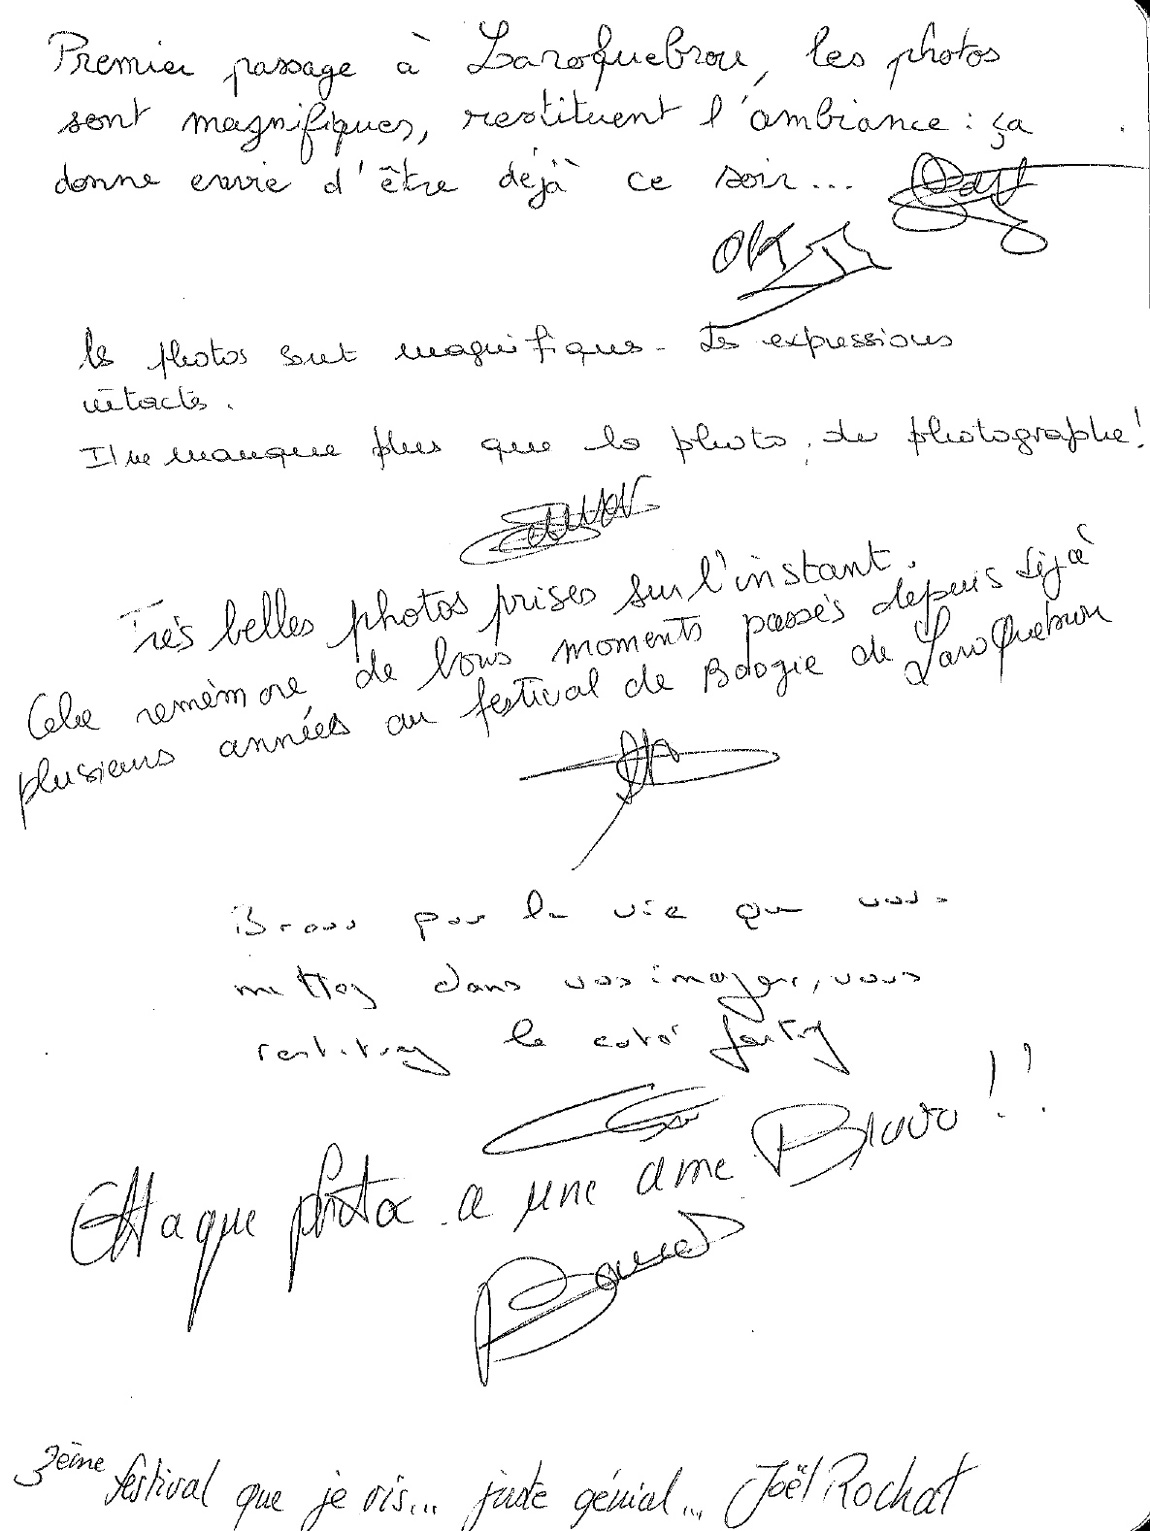 Premier passage à Laroquebrou, les photos
sont magnifiques, restituent l'ambiance : ça
donne envie d'être déjà ce soir...
les photos sont magnifiques - Les expressions
intactes.
Il ne manque plus que la photo, du photographe !
Très belles photos prises sur l'instant.
Cela remémore de bons moments passés depuis déjà
plusieurs années au festival de Boogie de LaroQuebrou
Bravo pour la vie que vous
mettez dans vos images, vous
restituez le coté
Chaque photo a une ame Bravo !!
3ème festival que je vis... juste génial... Joël Rochat